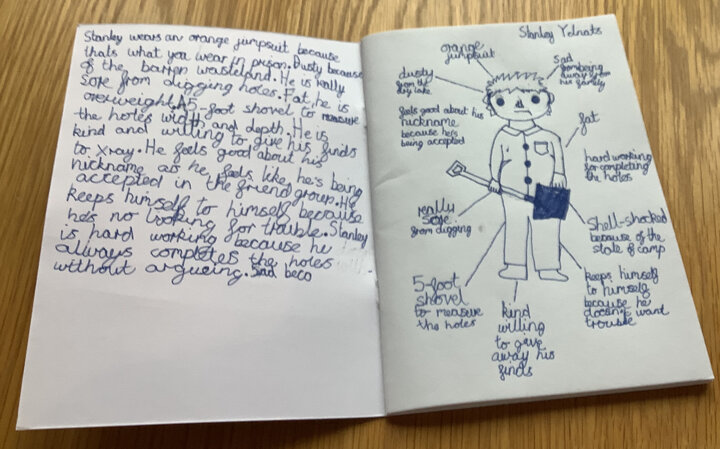 Stanley wears an orange jumpsuit because
thats what you wear in prison. Dusty because
of the barren wasteland. He is really
sore from digging holes. Fat he is
overweight. A 5-foot shovel to measure
the holes width and depth. He is
kind and willing to give his finds
to xray. He feels good about his
nickname as he feels like he's being
accepted in the friend group. He
keeps himself to himself because
he's no looking for trouble. Stanley
is hard working because he
always completes the holes
without argueing. Sad beco
Stanley Yelnats
orange
jumpsuit
dusty
from the
dry lake
sad
from being
away from
his family
feels good about his
nickname
because he's
being accepted
fat
hard working
for completing
the holes
really
sore
from digging
shell-shocked
because of the
state of camp
5-foot
shovel
to measure
the holes
kind
willing
to give
away his
finds
keeps himself
to himself
because he
doesn't want
trouble